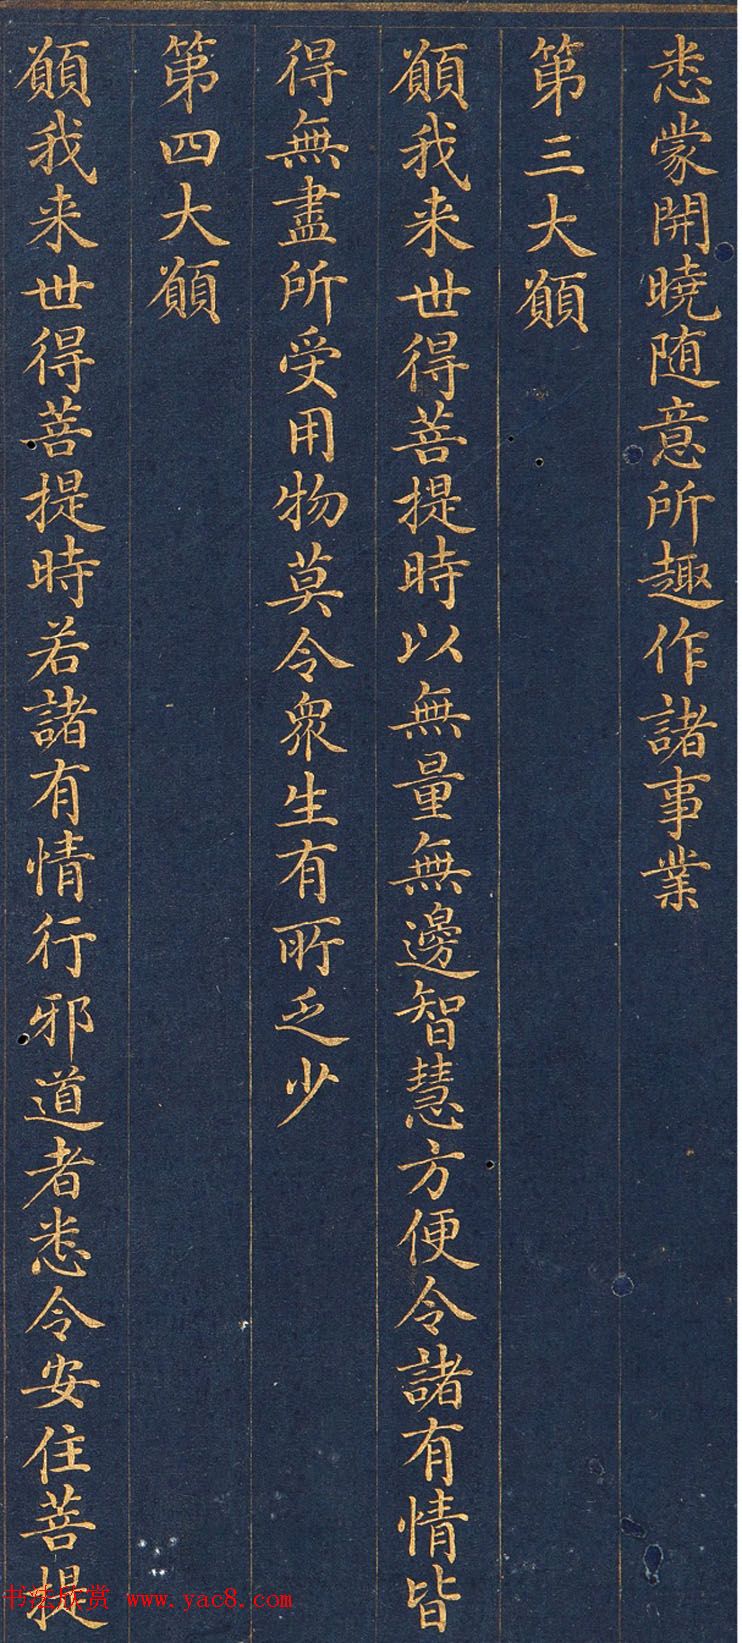 悉蒙開曉随意所趣作諸事業
第三大願
願我来世得菩提時以無量無邊智慧方便令諸有情皆
得無盡所受用物莫令衆生有所乏少
第四大願
願我来世得菩提時若諸有情行邪道者悉令安住菩提
书法欣赏 www.yac8.com